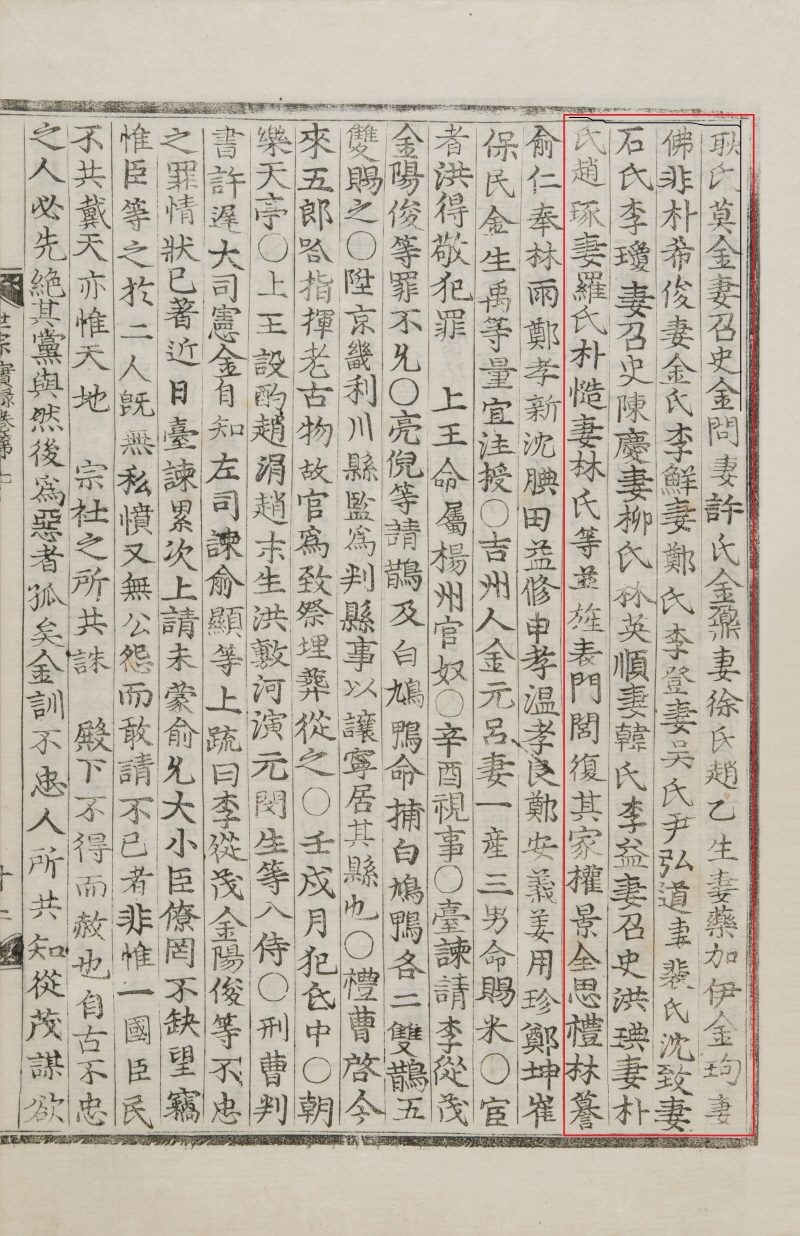 耿氏莫金妻召史金問妻許氏金䥐妻徐氏趙乙生妻藥加伊金玽妻
佛非朴希俊妻金氏李鮮妻鄭氏李登妻吳氏尹弘道妻裴氏沈致妻
石氏李瓊妻召史陳慶妻柳氏林英順妻韓氏李益妻召史洪㻶妻朴
氏趙琢妻羅氏朴愷妻林氏等並旌表門閭復其家權景全思禮林萶
俞仁奉林雨鄭孝新沈腆田益修申孝溫孝良鄭安義姜用珍鄭坤崔
保民金生禹等量宜注授○吉州人金元呂妻一產三男命賜米○宦
者洪得敬犯罪　上王命屬楊州官奴○辛酉視事○臺諫請李從茂
金陽俊等罪不允○亮倪等請鵲及白鳩鴨命捕白鳩鴨各二雙鵲五
雙賜之○陞京畿利川縣監爲判縣事以讓寧居其縣也○禮曹啓今
來五郎哈指揮老古物故官爲致祭埋葬從之○壬戌月犯氐中○朝
樂天亭○上王設酌趙涓趙末生洪敷河演元閔生等入侍○刑曹判
書許遲大司憲金自知左司諫俞顯等上疏曰李從茂金陽俊等不忠
之罪情狀已著近日臺諫累次上請未蒙俞允大小臣僚罔不缺望竊
惟臣等之於二人旣無私憤又無公怨而敢請不已者非惟一國臣民
不共戴天亦惟天地　宗社之所共誅　殿下不得而赦也自古不忠
之人必先絕其黨與然後爲惡者孤矣金訓不忠人所共知從茂謀欲
世宗實錄卷第七
十二